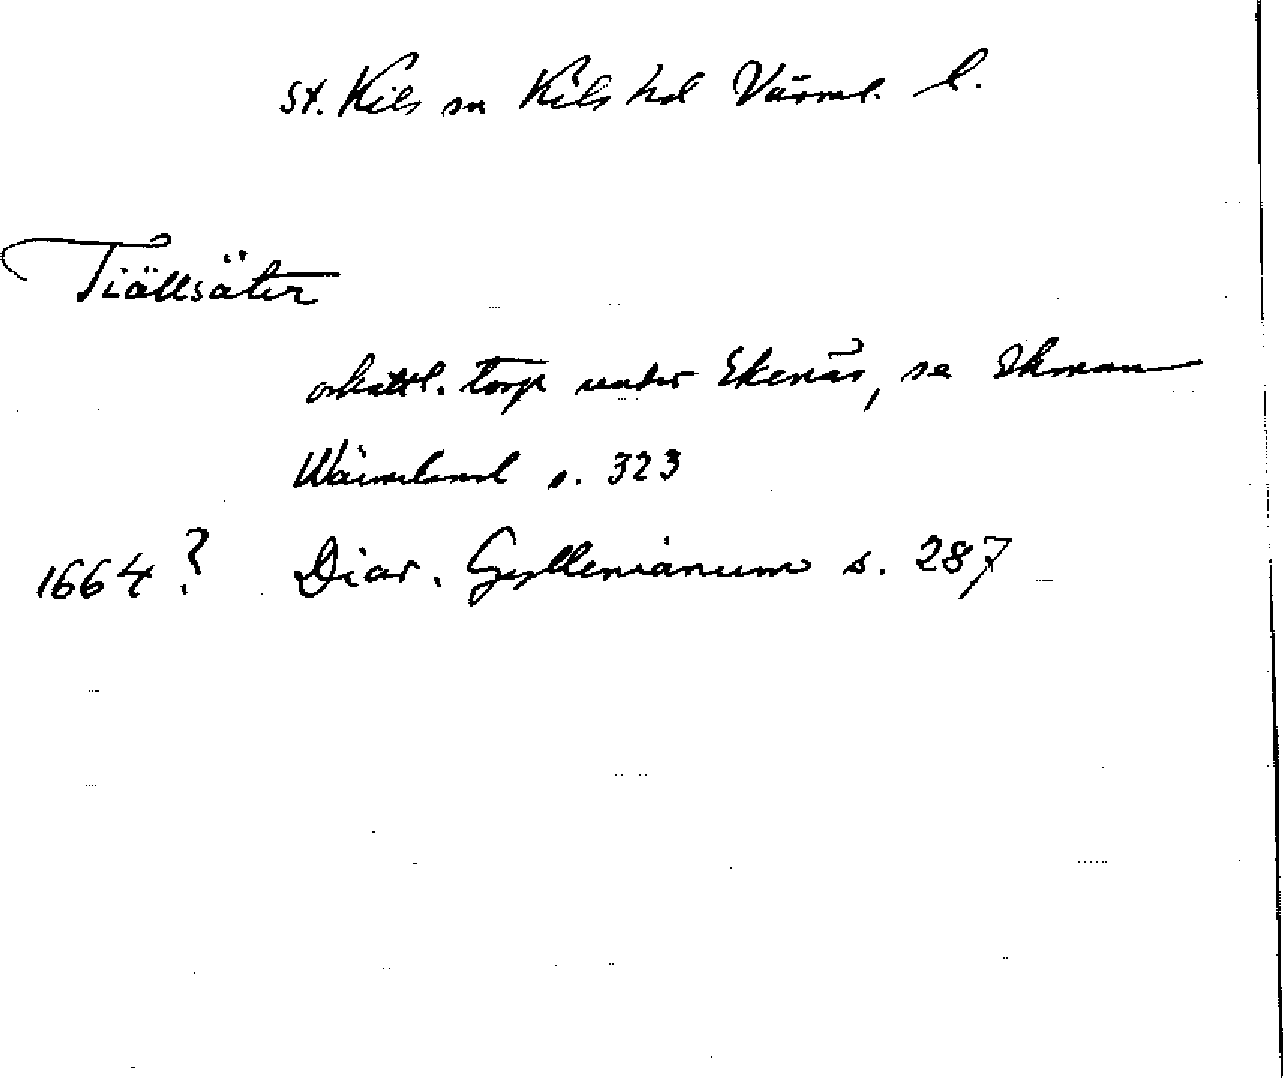 St. Kils sn Kils hd Värml. l.
Tiällsäter
oskattl. torp under Ekenäs, se Ekman
Wärmland s. 323
1664? Diar. Gyllenianum s. 287